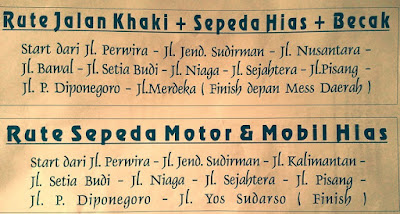 Rute Jalan Khaki + Sepeda Hias + Becak
Start dari Jl. Perwira - Jl. Jend. Sudirman - Jl. Nusantara -
Jl. Bawal - Jl. Setia Budi - Jl. Niaga - Jl. Sejahtera - Jl.Pisang -
Jl. P. Diponegoro - Jl.Merdeka ( Finish depan Mess Daerah )
Rute Sepeda Motor & Mobil Hias
Start dari Jl. Perwira - Jl. Jend. Sudirman - Jl. Kalimantan -
Jl. Setia Budi - Jl. Niaga - Jl. Sejahtera - Jl. Pisang -
Jl. P. Diponegoro - Jl. Yos Sudarso ( Finish )